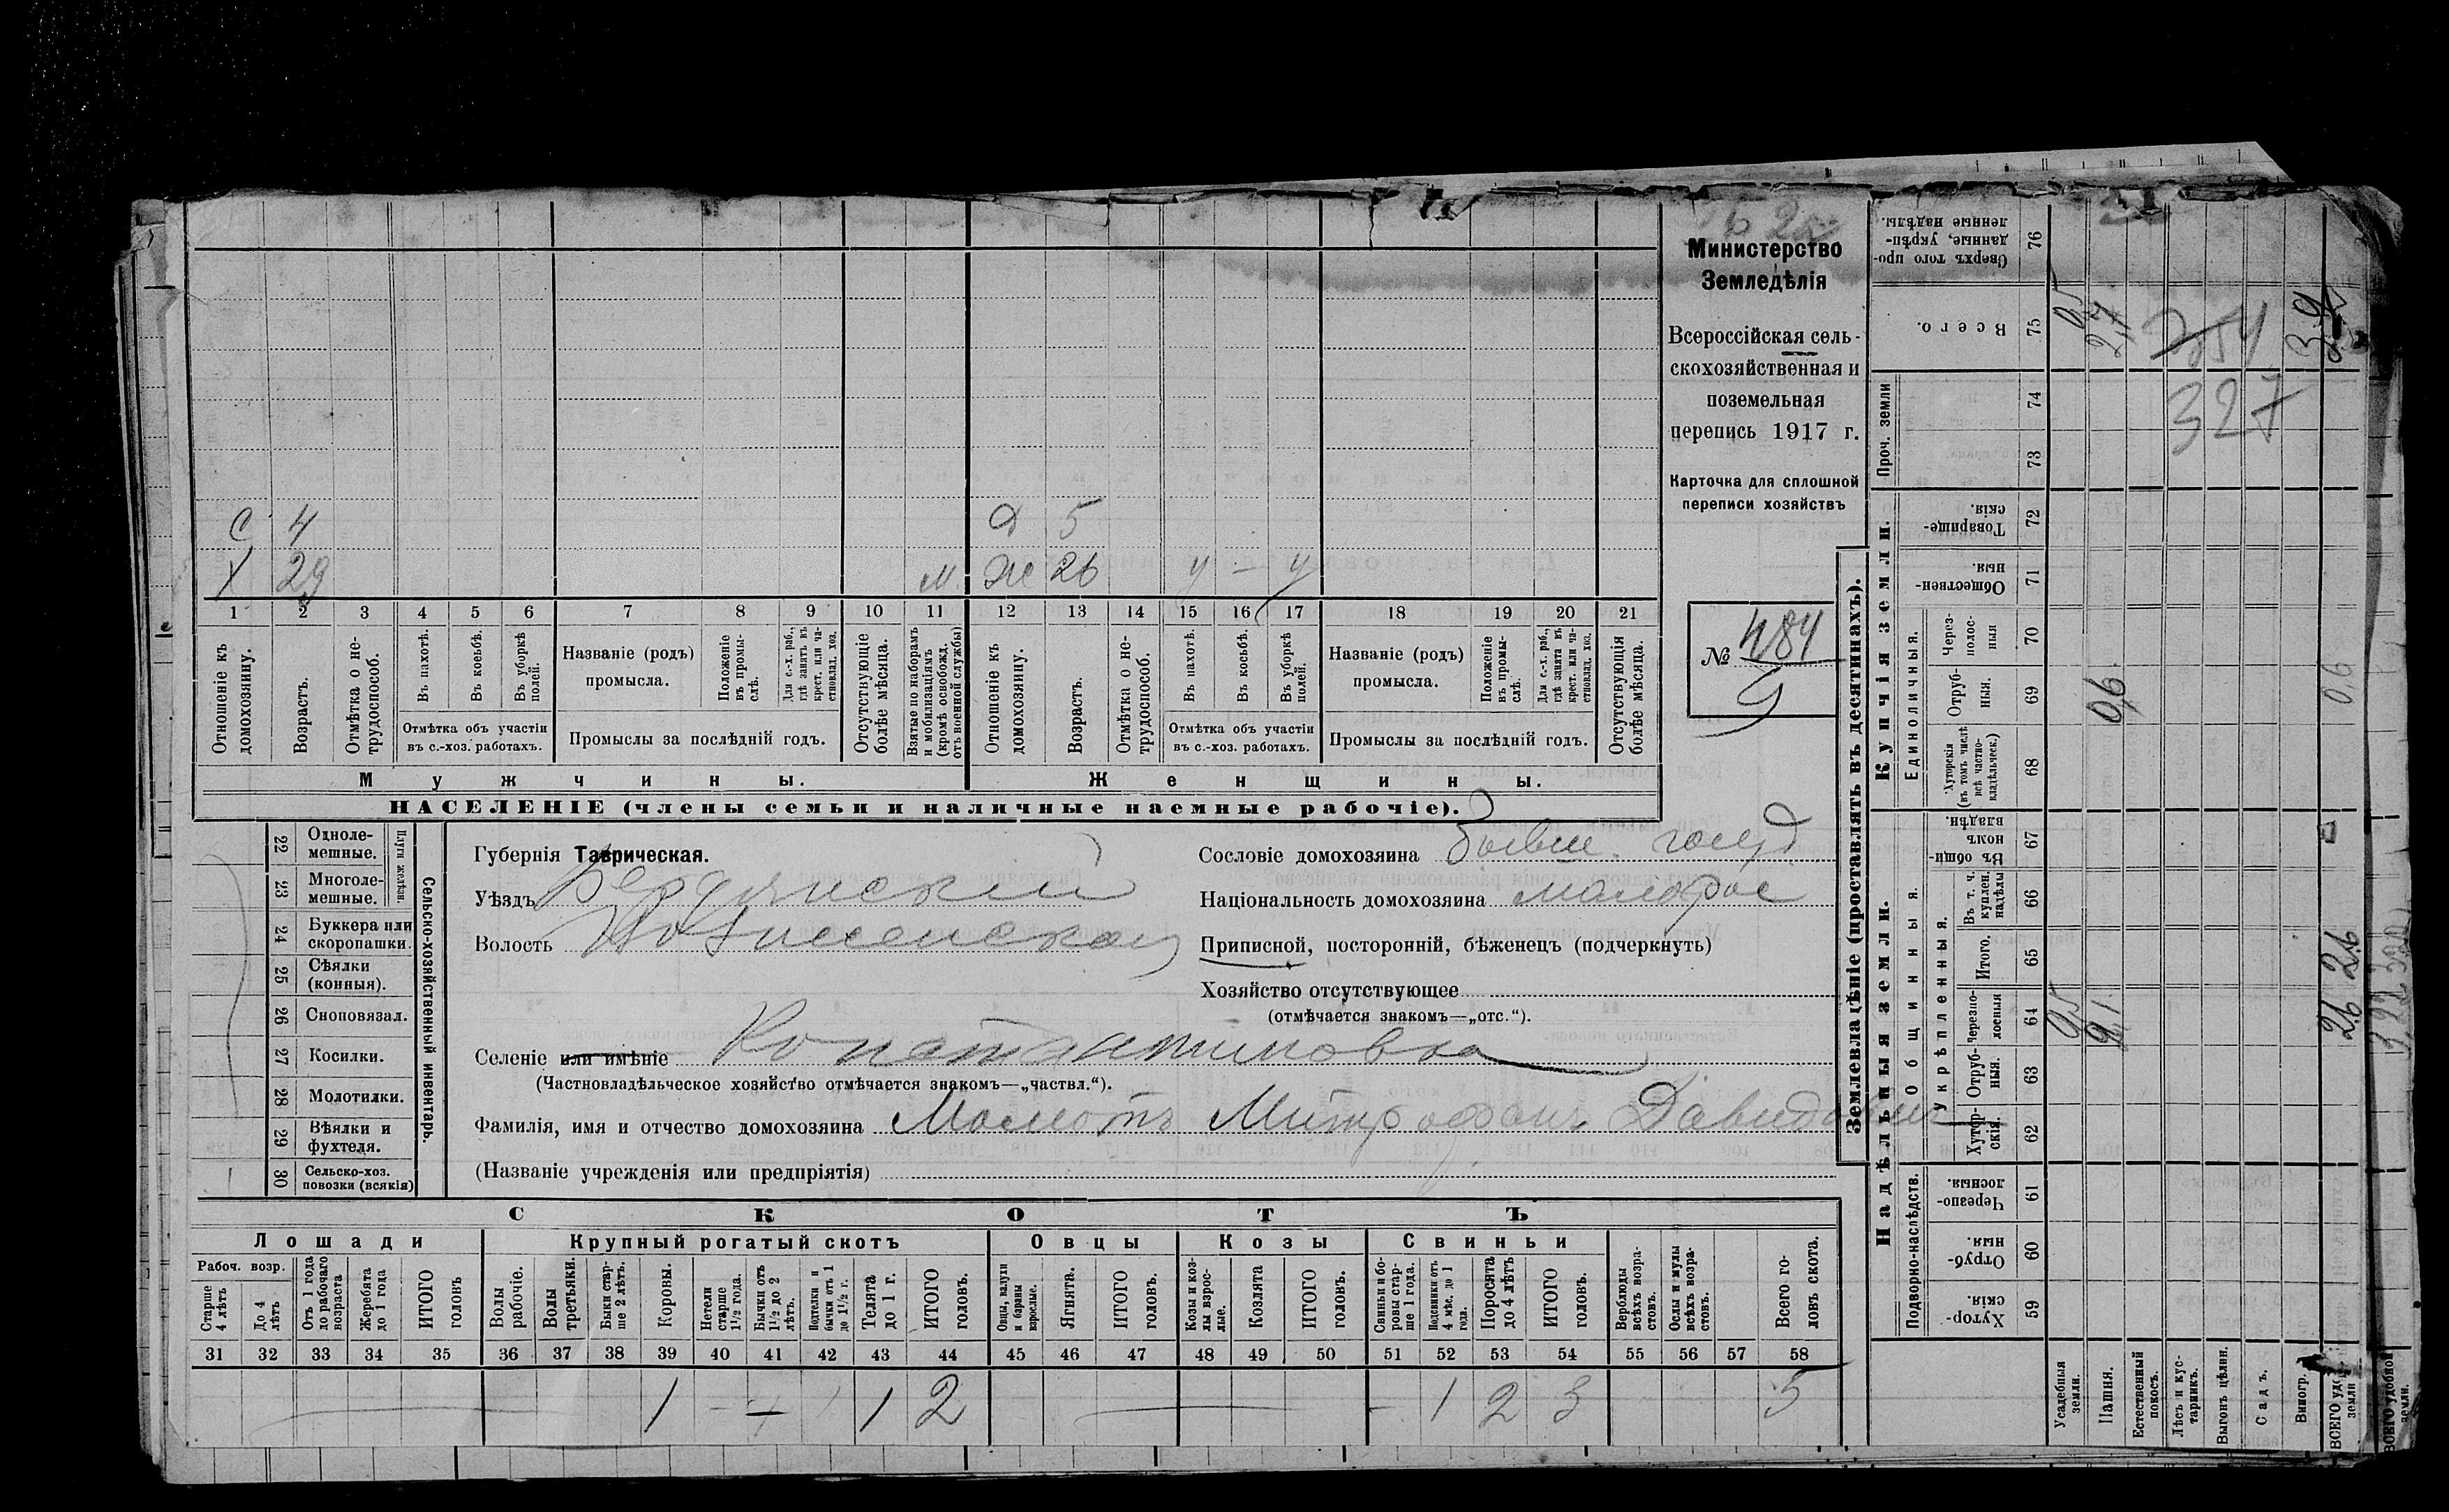 С 4 Д 5
Х 29 м. Ж 26 у — у
1 2 3 4 5 6 7 8 9 10 11 12 13 14 15 16 17 18 19 20 21
Отношеніе къ домохозяину.
Возрастъ.
Отмѣтка о не-трудоспособ.
Въ пахотѣ.
Въ косьбѣ.
Въ уборкѣ полей.
Отмѣтка объ участіи
въ с.-хоз. работахъ.
Названіе (родъ)
промысла.
Положеніе въ промы-слѣ.
Для с.-х. раб., гдѣ занятъ въ крест. или ча-стновлад. хоз.
Промыслы за послѣдній годъ.
Отсутствующіе болѣе мѣсяца.
Взятые по наборамъ и мобилизаціямъ (кромѣ освобожд. отъ военной службы)
Отношеніе къ домохозяину.
Возрастъ.
Отмѣтка о не-трудоспособ.
Въ пахотѣ.
Въ косьбѣ.
Въ уборкѣ полей.
Отмѣтка объ участіи
въ с.-хоз. работахъ.
Названіе (родъ)
промысла.
Положеніе въ промы-слѣ.
Для с.-х. раб., гдѣ занята въ крест. или ча-стновлад. хоз.
Промыслы за послѣдній годъ.
Отсутствующія болѣе мѣсяца.
Мужчины. Женщины.
НАСЕЛЕНІЕ (члены семьи и наличные наемные рабочіе).
Министерство
Земледѣлія
Всероссійская сель-
скохозяйственная и
поземельная
перепись 1917 г.
Карточка для сплошной
переписи хозяйствъ
№ 484
9
Сельско-хозяйственный инвентарь.
Плуги желѣзн.
22 Одноле-
мешные.
23 Многоле-
мешные.
24 Буккера или
скоропашки.
25 Сѣялки
(конныя).
26 Сноповязал.
27 Косилки.
28 Молотилки.
29 Вѣялки и
фухтеля.
30 Сельско-хоз.
повозки (всякія)
1
Губернія Таврическая.
Уѣздъ Бердянский
Волость
Сословіе домохозяина бывш. госуд.
Національность домохозяина малорос
Приписной, посторонній, бѣженецъ (подчеркнуть)
Хозяйство отсутствующее
(отмѣчается знакомъ—„отс.“).
Селеніе или имѣніе Константиновка
(Частновладѣльческое хозяйство отмѣчается знакомъ—„частвл.“).
Фамилія, имя и отчество домохозяина Момотъ Митрофанъ Давидович
(Названіе учрежденія или предпріятія)
СКОТЪ
Лошади Крупный рогатый скотъ Овцы Козы Свиньи
Рабоч. возр.
Старше 4 лѣтъ
До 4 лѣтъ
Отъ 1 года до рабочаго возраста
Жеребята до 1 года
ИТОГО головъ
Волы рабочіе.
Волы третьяки.
Быки стар-ше 2 лѣтъ.
Коровы.
Нетели старше 1½ года.
Бычки отъ 1½ до 2 лѣтъ.
Подтелки и бычки отъ 1 до 1½ г.
Телята до 1 г.
ИТОГО головъ.
Овцы, валухи и бараны взрослые.
Ягнята.
ИТОГО головъ.
Козы и коз-лы взрос-лые.
Козлята
ИТОГО головъ.
Свиньи и бо-ровы стар-ше 1 года.
Подсвинки отъ 4 мѣс. до 1 года.
Поросята до 4 лѣтъ
ИТОГО головъ.
Верблюды всѣхъ возра-стовъ.
Ослы и мулы всѣхъ возра-стовъ.
Всего го-ловъ скота.
31 32 33 34 35 36 37 38 39 40 41 42 43 44 45 46 47 48 49 50 51 52 53 54 55 56 57 58
1 1 2 1 2 3 5
Землевладѣніе (проставлять въ десятинахъ).
Купчія земли.
Сверхъ того про-данные, укрѣп-ленные надѣлы. 76
Всего. 75
Проч. земли
74
73
Товарище-скія. 72
Обществен-ныя. 71
Единоличныя.
Через-полос-ныя 70
Отруб-ныя. 69
Хуторскія (въ томъ числѣ всѣ частно-владѣльческ.) 68
Надѣльныя земли.
Общинныя.
Въ общи-номъ владѣн. 67
Укрѣпленныя.
Въ т. ч. куплен. надѣлы 66
Итого. 65
Черезпо-лосныя 64
Отруб-ныя. 63
Хутор-скія. 62
Подворно-наслѣдств.
Черезпо-лосныя. 61
Отруб-ныя. 60
Хутор-скія. 59
Усадебныя земли.
Пашня.
Естественный покосъ.
Лѣсъ и кус-тарникъ.
Выгонъ цѣлин.
Садъ.
Виногр.
ВСЕГО удобной земли.
0,5
2,7
327
0,6
0,6
0,5
2,1
26
26